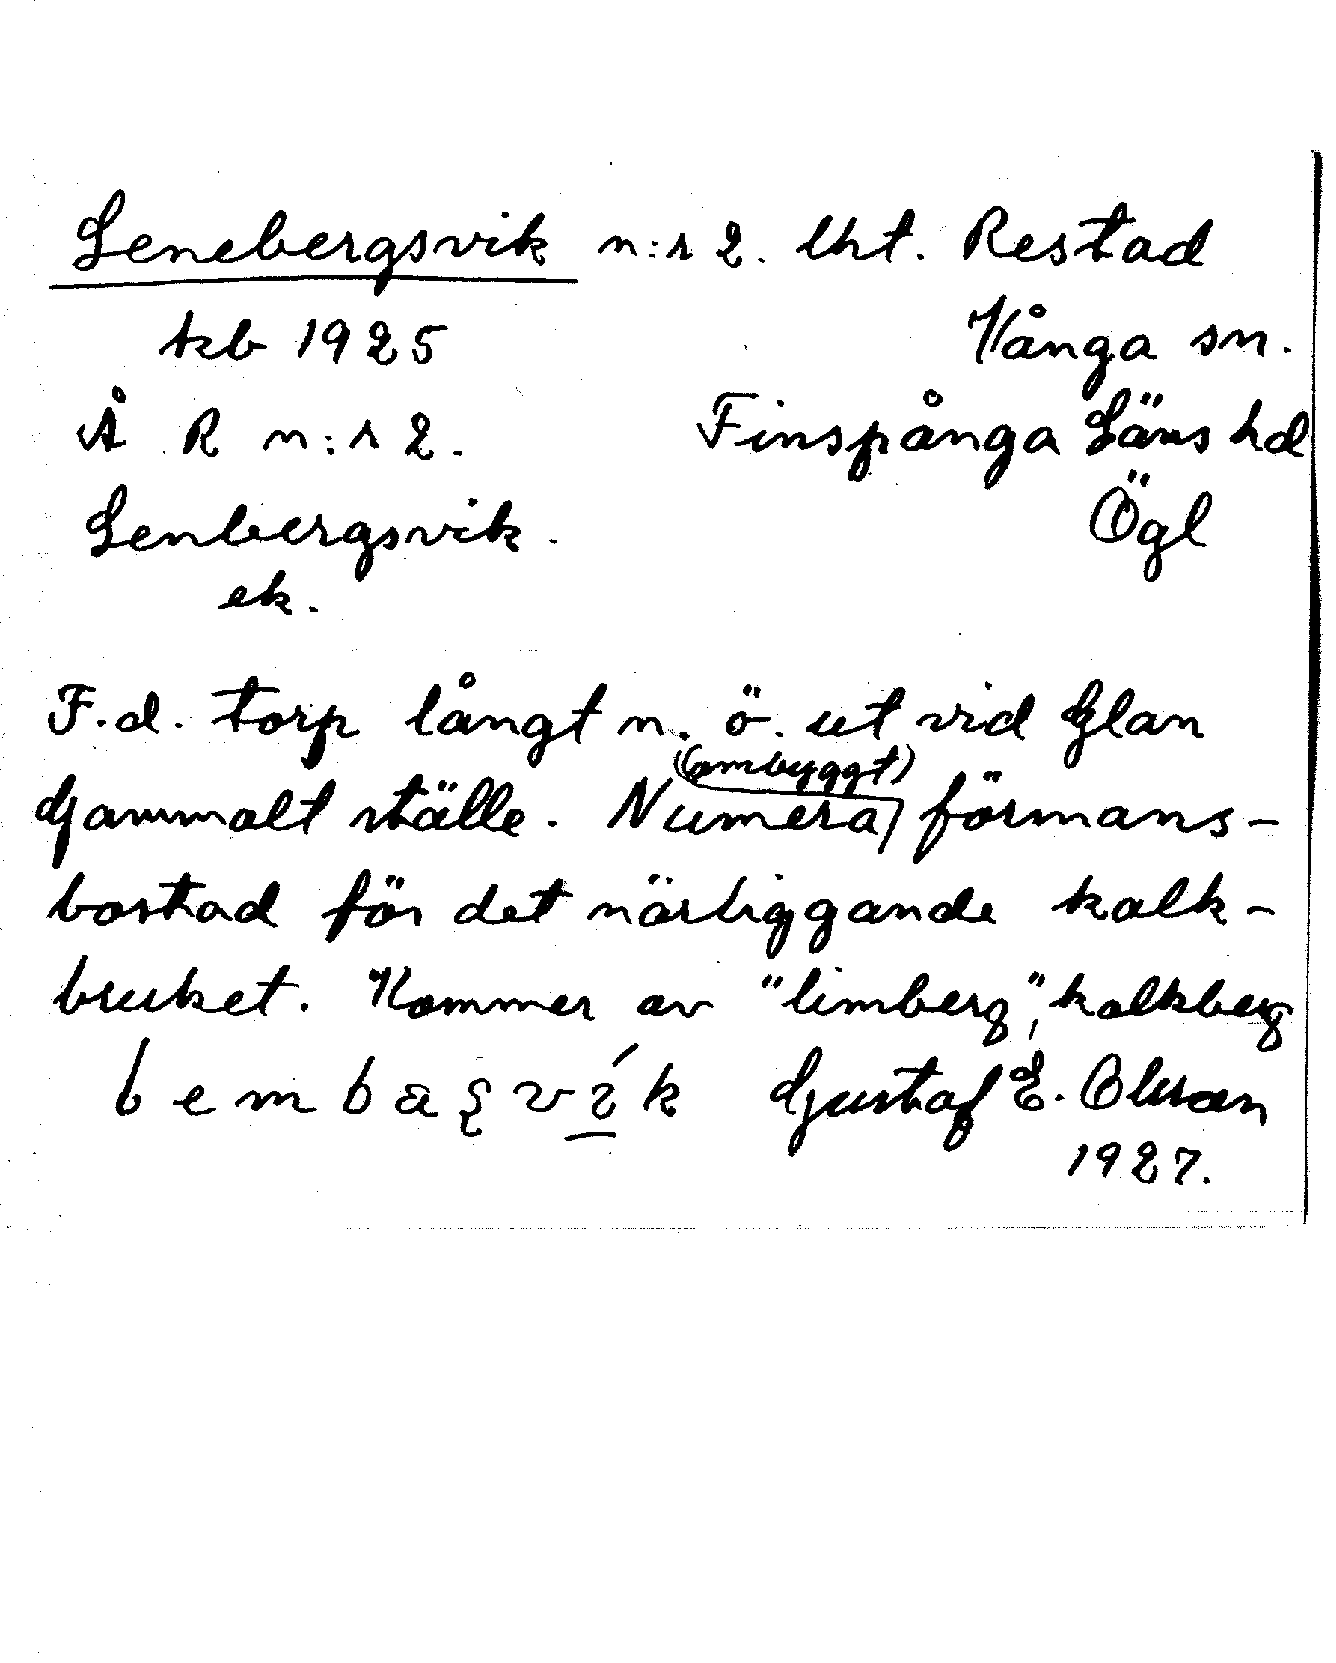 Lenebergsvik n:r 2. lht. Restad
kb 1925 Vånga sn.
Å R n:r 2. Finspånga Läns hd
Lenbergsvik. Ögl
ek.
F.d. torp långt n. ö. ut vid Glan
(ombyggt)
Gammalt ställe. Numera förmans-
bostad för det närliggande kalk-
bruket. Kommer av "limberg", kalkberg
Gustaf E. Olson
1927.